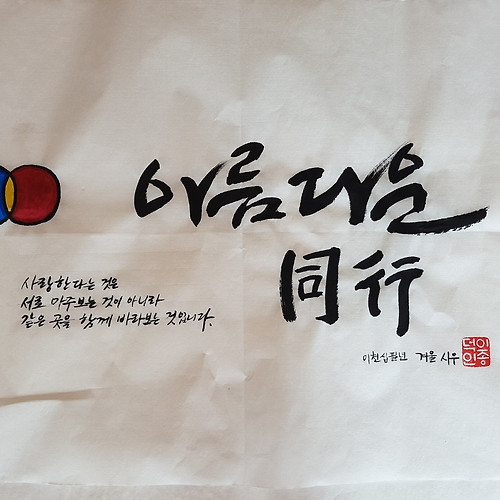 아름다운
同行
사랑한다는 것은
서로 마주보는 것이 아니라
같은 곳을 함께 바라보는 것입니다.
이천십팔년 겨울 사우